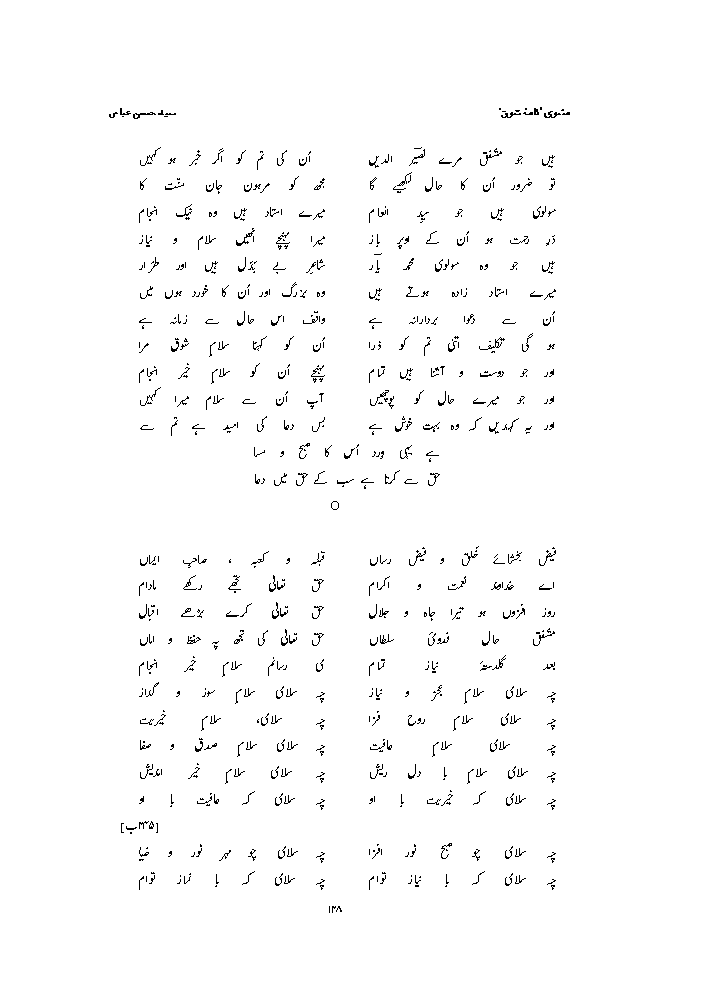 مثنوی 'نامۂ شوق' سید حسن عباس
ہیں جو مشفق مرے نصیر الدیں اُن کی تم کو اگر خبر ہو کہیں
تو ضرور اُن کا حال لکھیے گا مجھ کو مرہون جان منّت کا
مولوی ہیں جو سیّد انعام میرے استاد ہیں وہ نیک انجام
دَرِ رحمت ہو اُن کے اوپر باز میرا پہنچے انھیں سلام و نیاز
ہیں جو وہ مولوی محمد یار شاعرِ بے بدَل ہیں اور طرّار
میرے استاد زادہ ہوتے ہیں وہ بزرگ اور اُن کا خورد ہوں میں
اُن سے دعوا بردارانہ ہے واقف اس حال سے زمانہ ہے
ہو گی تکلیف اتنی تم کو ذرا اُن کو کہنا سلامِ شوق مرا
اور جو دوست و آشنا ہیں تمام پہنچے اُن کو سلامِ خیر انجام
اور جو میرے حال کو پوچھیں آپ اُن سے سلام میرا کہیں
اور یہ کہدیں کہ وہ بہت خوش ہے بس دعا کی امید ہے تم سے
ہے یہی ورد اُس کا صبح و مسا
حق سے کرتا ہے سب کے حق میں دعا
○
فیض بخشائے خُلق و فیض رساں قبلہ و کعبہ ، صاحبِ ایماں
اے خداوندِ نعمت و اکرام حق تعالیٰ تجھے رکھے مادام
روز افزوں ہو تیرا جاہ و جلال حق تعالیٰ کرے بڑھے اقبال
مشفق حال فدویٔ سلطاں حق تعالیٰ کی تجھ پہ حفظ و اماں
بعد گلدستۂ نیاز تمام می رسانم سلامِ خیر انجام
چہ سلامی سلامِ عجز و نیاز چہ سلامی سلامِ سوز و گداز
چہ سلامی سلامِ روح فزا چہ سلامی، سلامِ خیریت
چہ سلامی سلامِ عافیت چہ سلامی سلامِ صدق و صفا
چہ سلامی سلامِ با دل ریش چہ سلامی سلامِ خیر اندیش
چہ سلامی کہ خیریت با او چہ سلامی کہ عافیت با او
[۲۳۵ب]
چہ سلامی چو صبح نور افزا چہ سلامی چو مہر نور و ضیا
چہ سلامی کہ با نیاز توام چہ سلامی کہ با نماز توام
۱۳۸